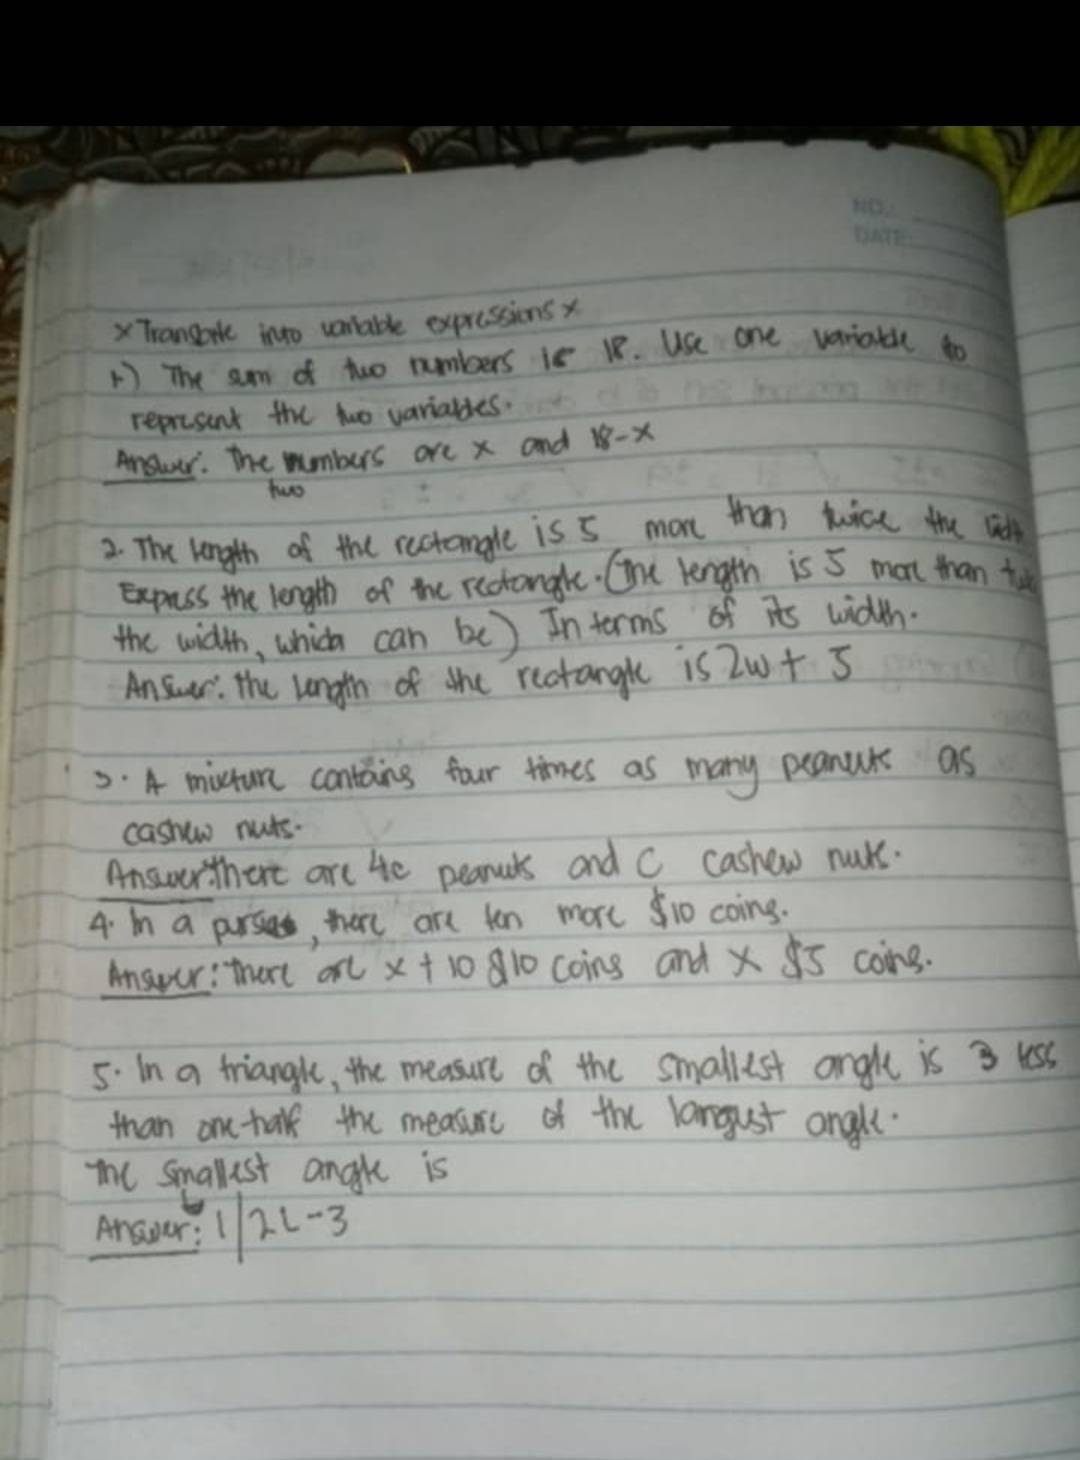 NO.:
DATE:
x Translate into variable expressions x
1) The sum of two numbers is 18. Use one variable to
represent the two variables.
Answer: The numbers are x and 18-x
two
2. The length of the rectangle is 5 more than twice the
Express the length of the rectangle. (The length is 5 more than
the width, which can be) In terms of its width.
Answer: The length of the rectangle is 2w + 5
3. A mixture contains four times as many peanuts as
cashew nuts.
Answer: There are 4c peanuts and C cashew nuts.
4. In a purse, there are ten more $10 coins.
Answer: There are x + 10 $10 coins and x $5 coins.
5. In a triangle, the measure of the smallest angle is 3 less
than one-half the measure of the langust angle.
The smallest angle is
Answer: 1/2L-3